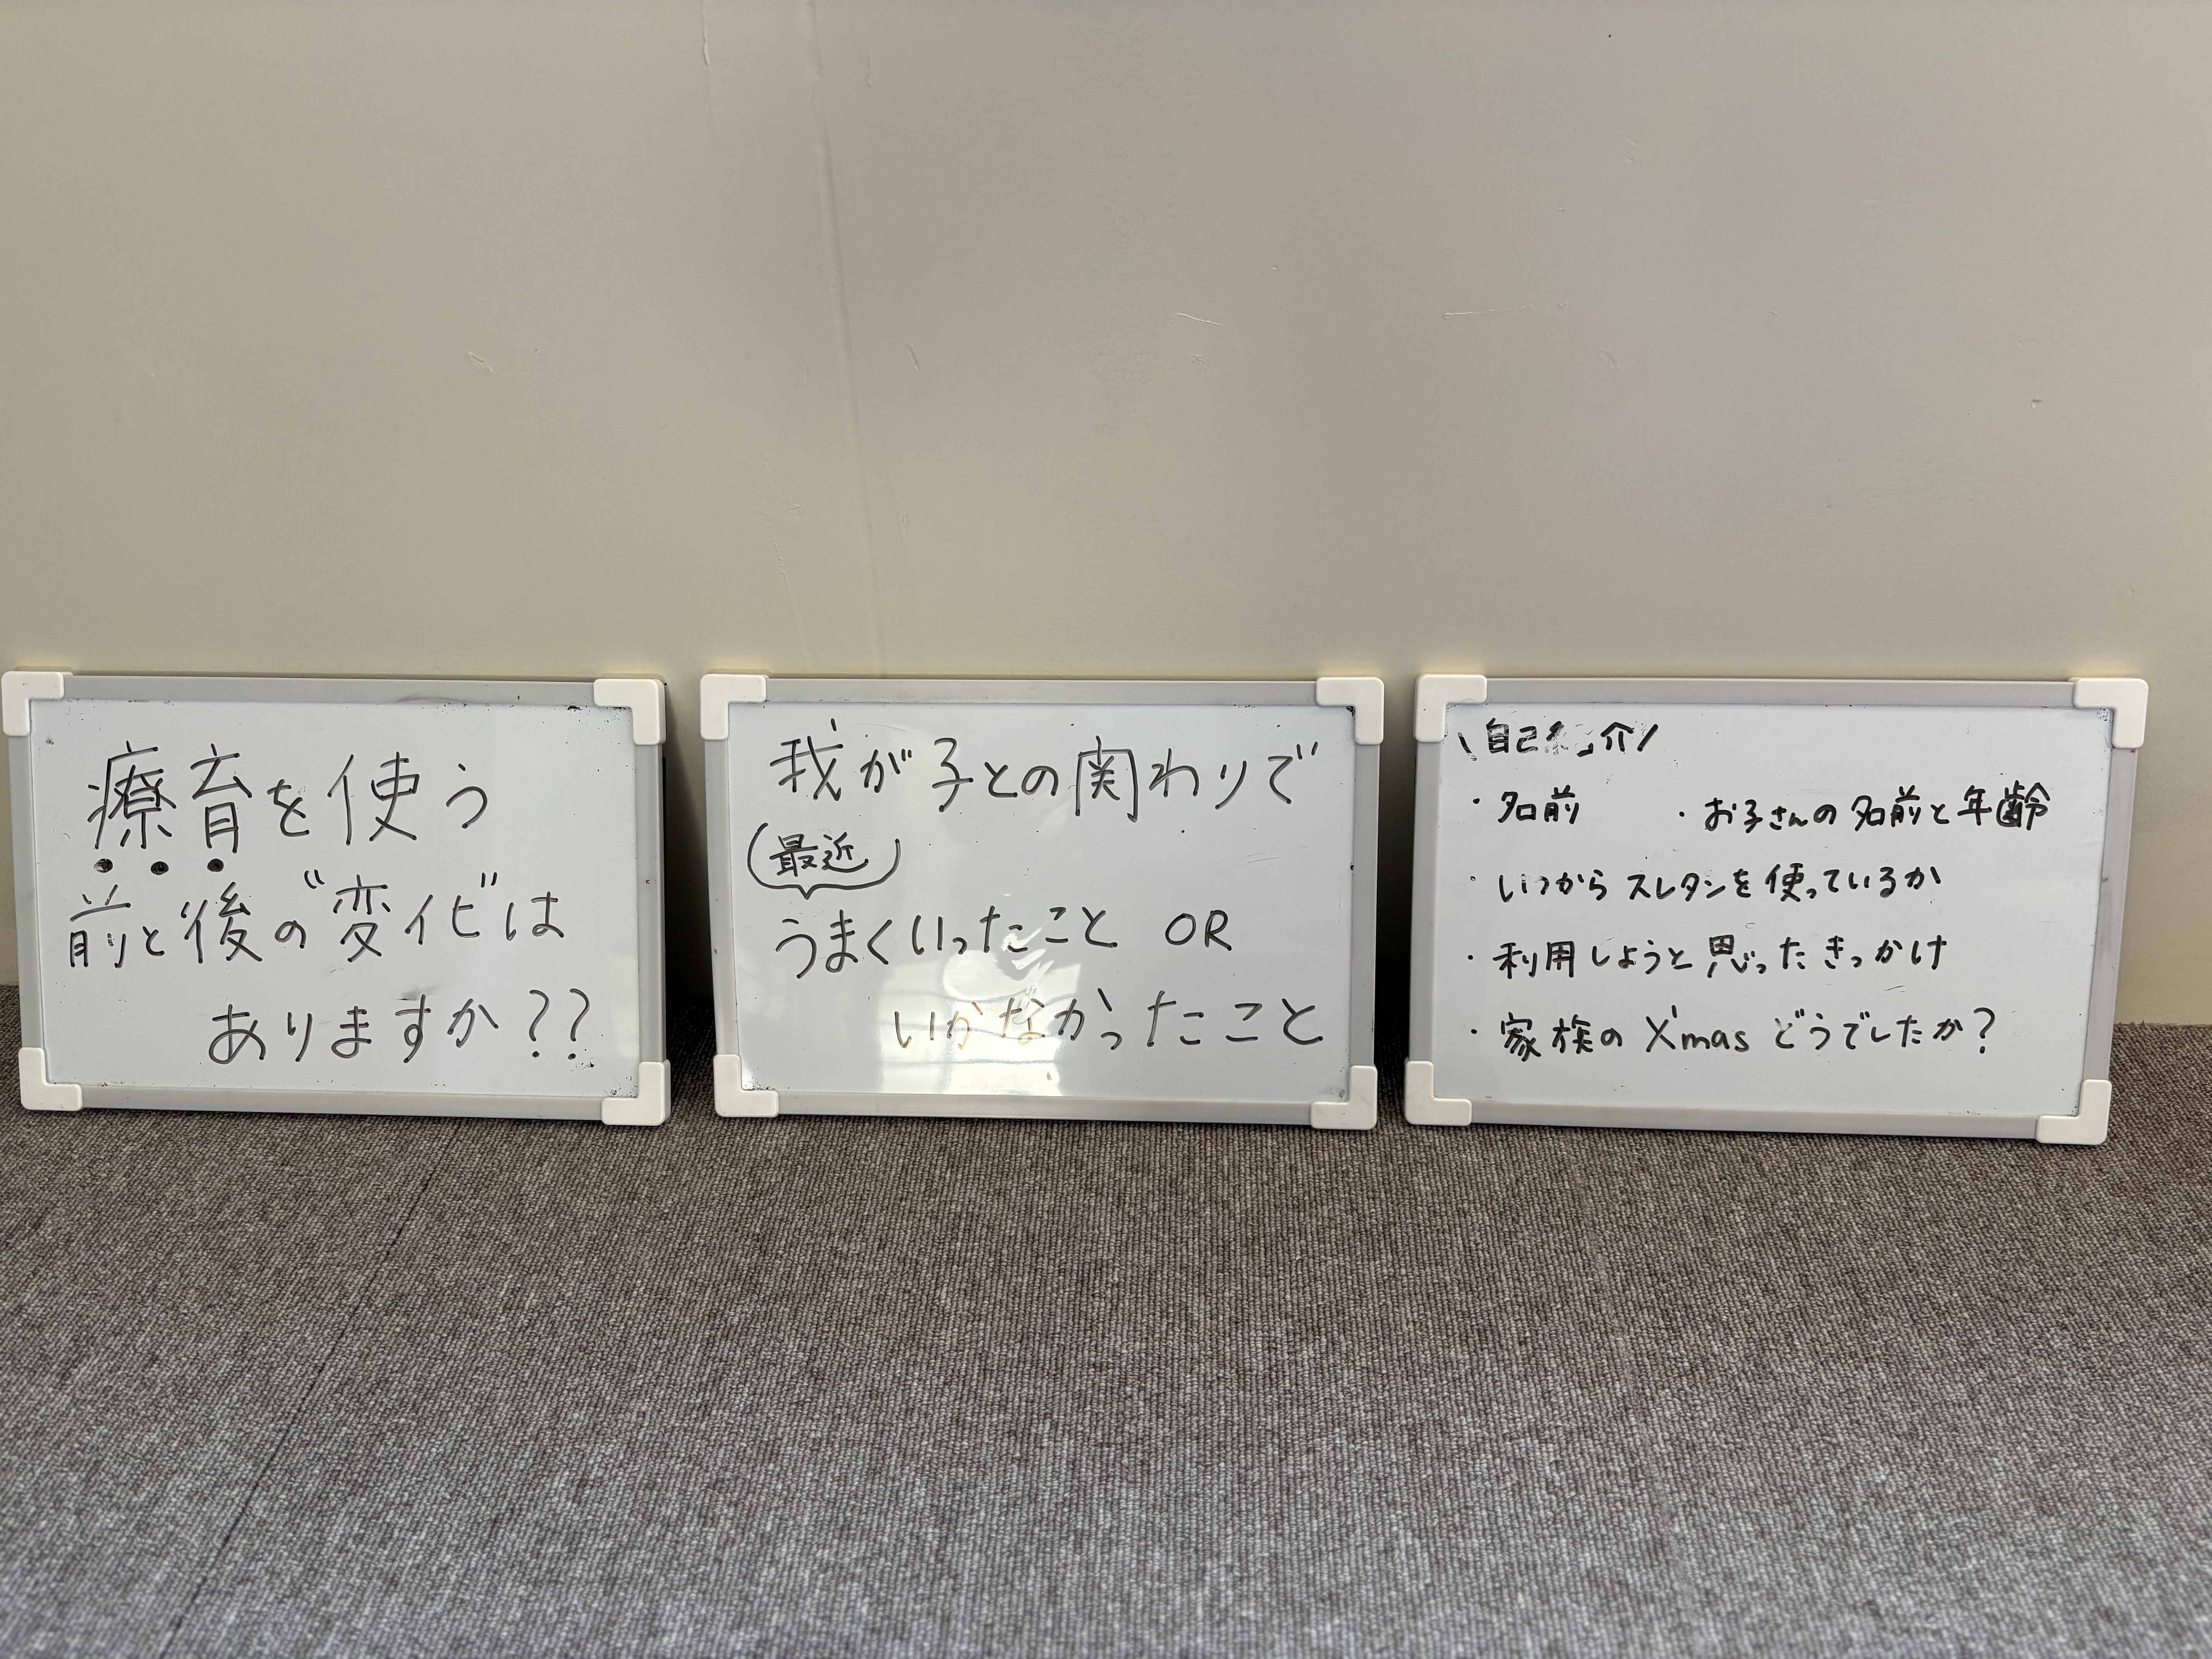 療育を使う
前と後の"変化"は
ありますか??
我が子との関わりで
(最近)
うまくいったこと OR
いかなかったこと
\自己紹介/
・名前 ・お子さんの名前と年齢
・いつからスレタンを使っているか
・利用しようと思ったきっかけ
・家族のX'mas どうでしたか?